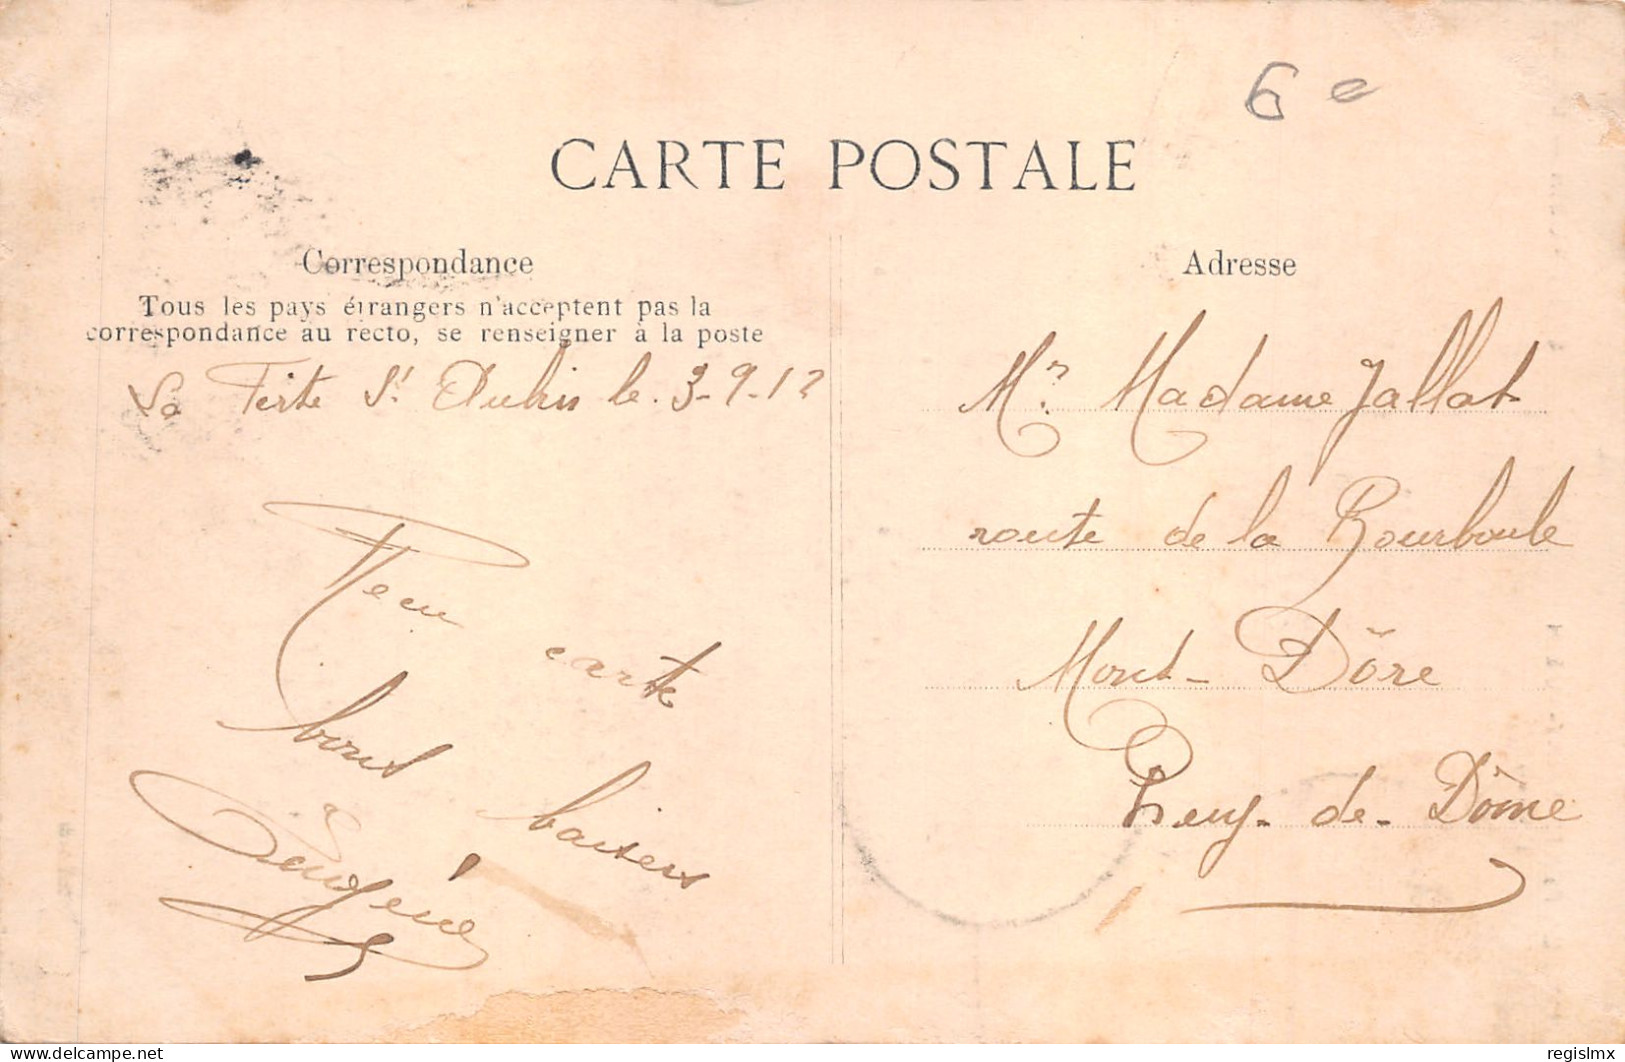 6 e
CARTE POSTALE
Correspondance
Tous les pays étrangers n'acceptent pas la
correspondance au recto, se renseigner à la poste
La Ferte St Aubin le. 3-9-12
Recu carte
bons baisers
Eugène
Adresse
Mr Madame Jallat
route de la Bourboule
Mont-Dôre
Puy-de-Dôme
delcampe.net
regislmx